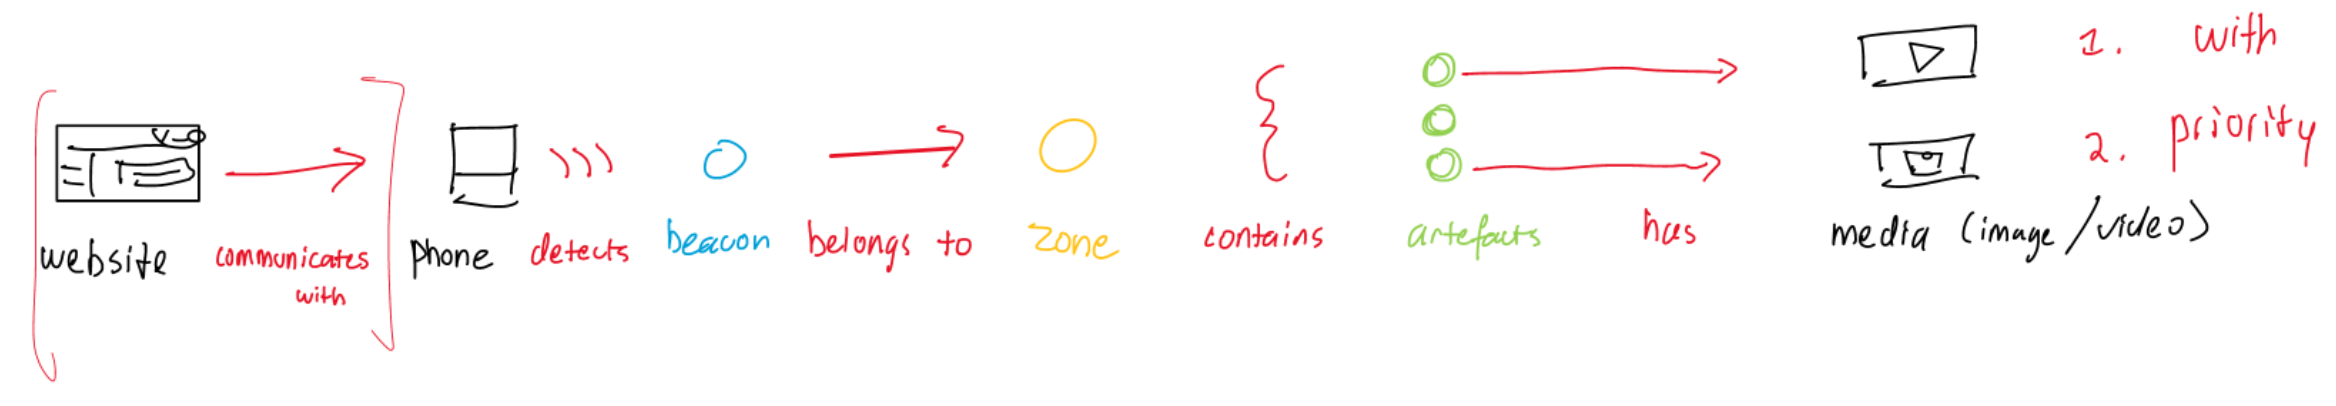 website
communicates
with
phone
detects
beacon
belongs to
zone
contains
artefacts
has
media (image/video)
1. with
2. priority